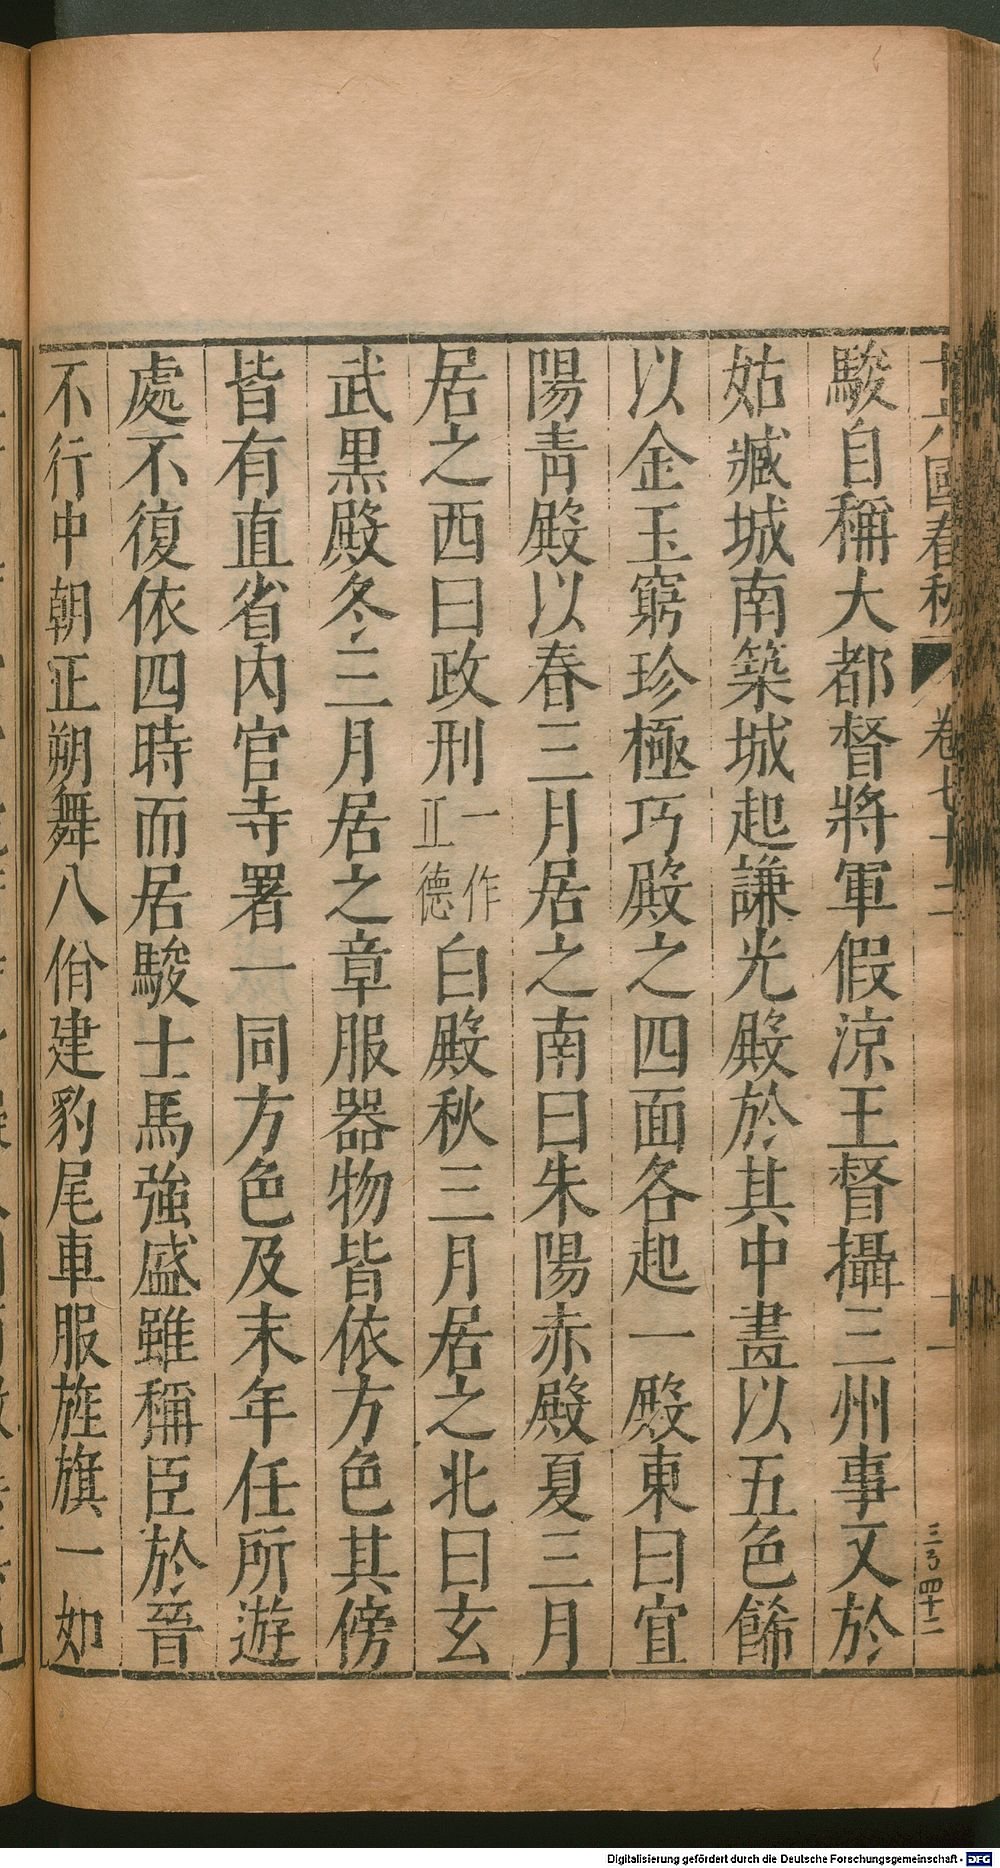 十六國春秋 卷七十二 十一
駿自稱大都督將軍假涼王督攝三州事又於
姑臧城南築城起謙光殿於其中畫以五色餙
以金玉窮珍極巧殿之四面各起一殿東曰宜
陽青殿以春三月居之南曰朱陽赤殿夏三月
居之西曰政刑一作正德白殿秋三月居之北曰玄
武黒殿冬三月居之章服器物皆依方色其傍
皆有直省內官寺署一同方色及末年任所遊
處不復依四時而居駿士馬強盛雖稱臣於晉
不行中朝正朔舞八佾建豹尾車服旌旗一如
Digitalisierung gefördert durch die Deutsche Forschungsgemeinschaft - DFG